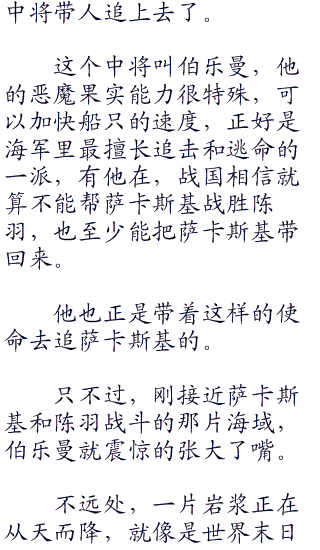 中将带人追上去了。
这个中将叫伯乐曼，他
的恶魔果实能力很特殊，可
以加快船只的速度，正好是
海军里最擅长追击和逃命的
一派，有他在，战国相信就
算不能帮萨卡斯基战胜陈
羽，也至少能把萨卡斯基带
回来。
他也正是带着这样的使
命去追萨卡斯基的。
只不过，刚接近萨卡斯
基和陈羽战斗的那片海域，
伯乐曼就震惊的张大了嘴。
不远处，一片岩浆正在
从天而降，就像是世界末日